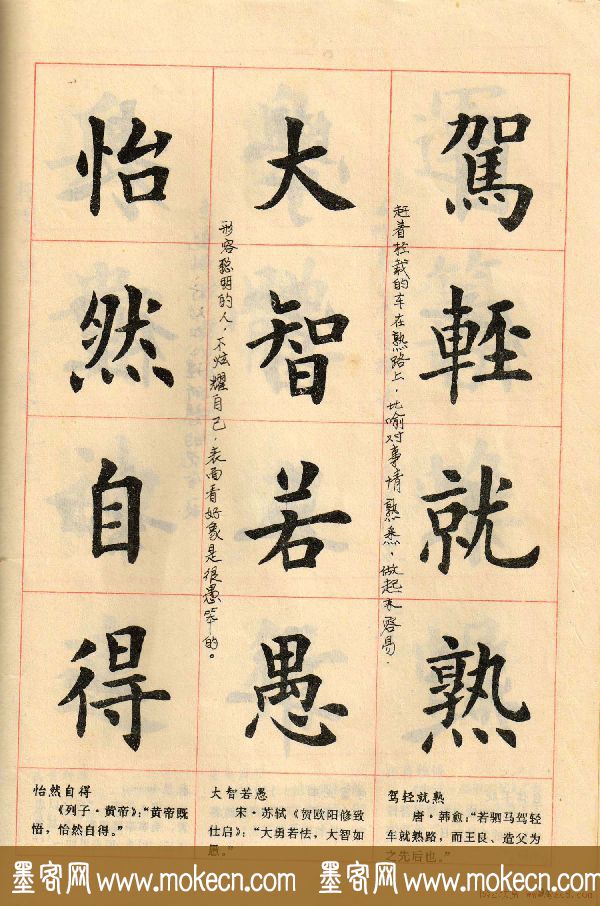 駕輕就熟
赶着轻载的车在熟路上，比喻对事情熟悉，做起来容易．
大智若愚
形容聪明的人，不炫耀自己，表面看好象是很愚笨的。
怡然自得
驾轻就熟
唐·韩愈：“若驷马驾轻
车就熟路，而王良、造父为
之先后也。”
大智若愚
宋·苏轼《贺欧阳修致
仕启》：“大勇若怯，大智如
愚。”
怡然自得
《列子·黄帝》：“黄帝既
悟，怡然自得。”
墨客网 www.mokecn.com 墨客网 www.mokecn.com 墨客网